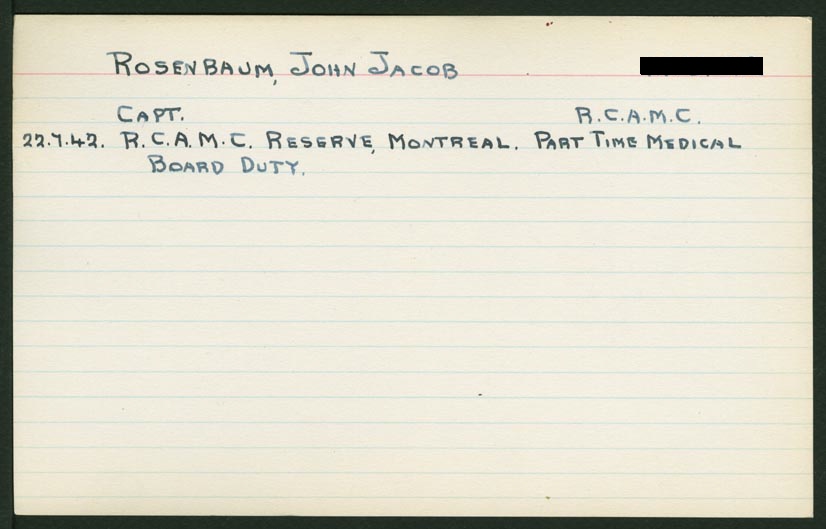 ROSENBAUM, JOHN JACOB
CAPT. R.C.A.M.C.
22.7.42. R.C.A.M.C. RESERVE, MONTREAL. PART TIME MEDICAL
BOARD DUTY.